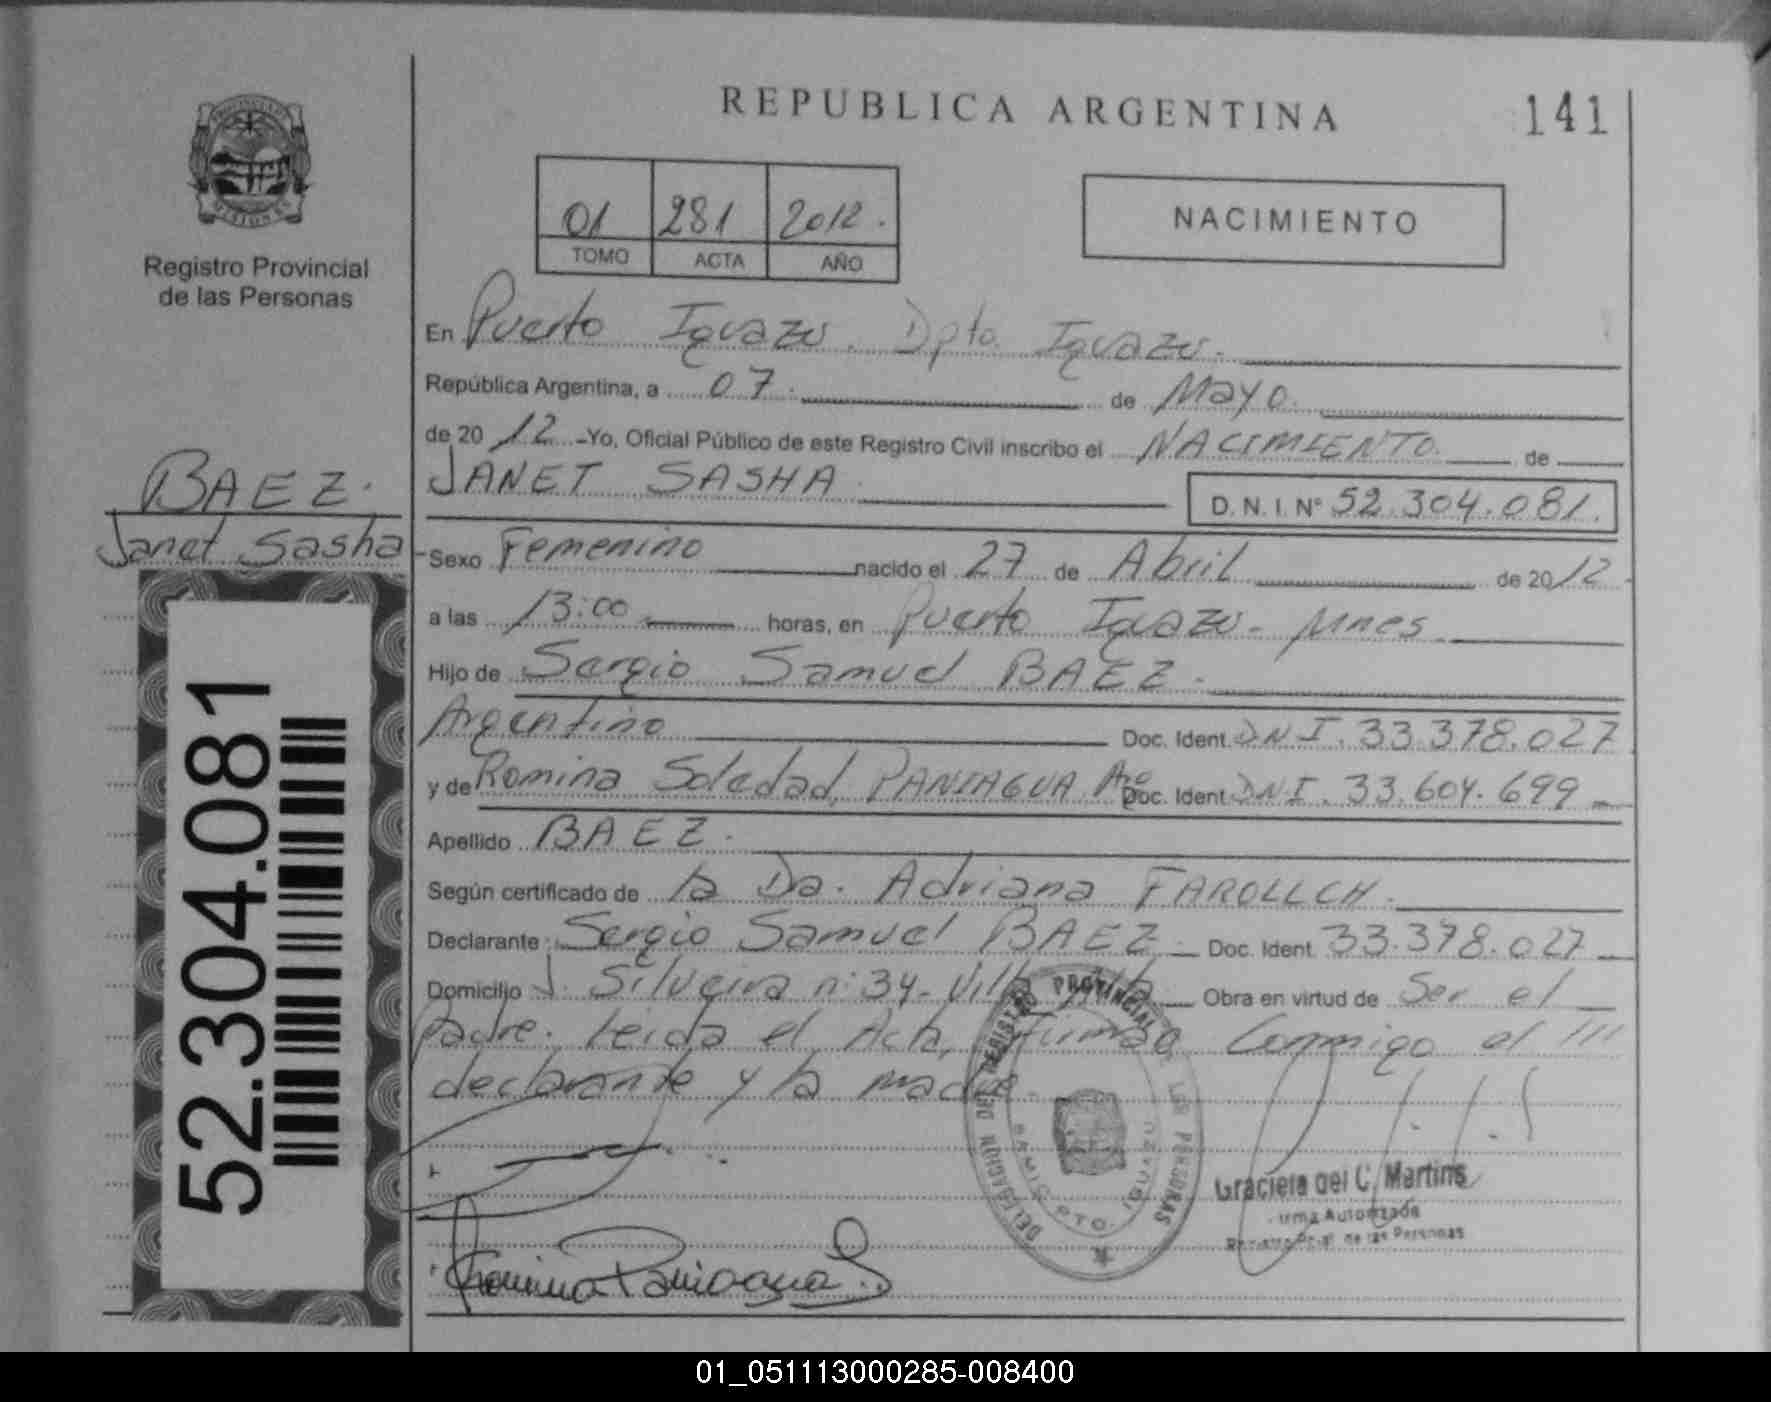 REPUBLICA ARGENTINA
141
01 281 2012.
TOMO ACTA AÑO
NACIMIENTO
MISIONES
Registro Provincial
de las Personas
En Puerto Iguazu. Dpto. Iguazu.
República Argentina, a 07. de Mayo.
de 20 12 -Yo, Oficial Público de este Registro Civil inscribo el NACIMIENTO. de
JANET SASHA
D. N. I. Nº 52.304.081.
BAEZ.
Janet Sasha
Sexo Femenino nacido el 27 de Abril de 20 12
a las 13:00 horas, en Puerto Iguazu - Mnes.
Hijo de Sergio Samuel BAEZ.
Argentino Doc. Ident. DNI. 33.378.027
y de Romina Soledad PANIAGUA Arg Doc. Ident. DNI. 33.604.699
Apellido BAEZ.
Según certificado de la Da. Adriana FAROLLCH.
Declarante: Sergio Samuel BAEZ. Doc. Ident. 33.378.027
Domicilio J. Silveira nº 34 - Villa Obra en virtud de Ser el
padre. Leida el Acta, Firman Conmigo el ///
declarante y la madre
52.304.081
DELEGACION DEL REGISTRO PROVINCIAL DE LAS PERSONAS
DPTO. IGUAZU
Graciela del C. Martins
Firma Autorizada
Registro Pcial. de las Personas
Romina Paniagua S.
01_051113000285-008400